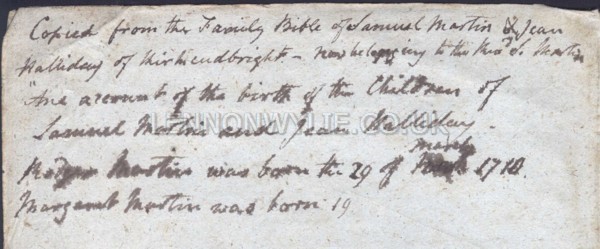 Copied from the Family Bible of Samuel Martin & Jean
Halliday of Kirkcudbright - now belonging to the Revd. S. Martin
"Ane account of the birth of the Children of
Samuel Martin and Jean Halliday -
LENNONWYLIE.CO.UK
March
Martin was born the 29 of 1710.
Margaret Martin was born 19